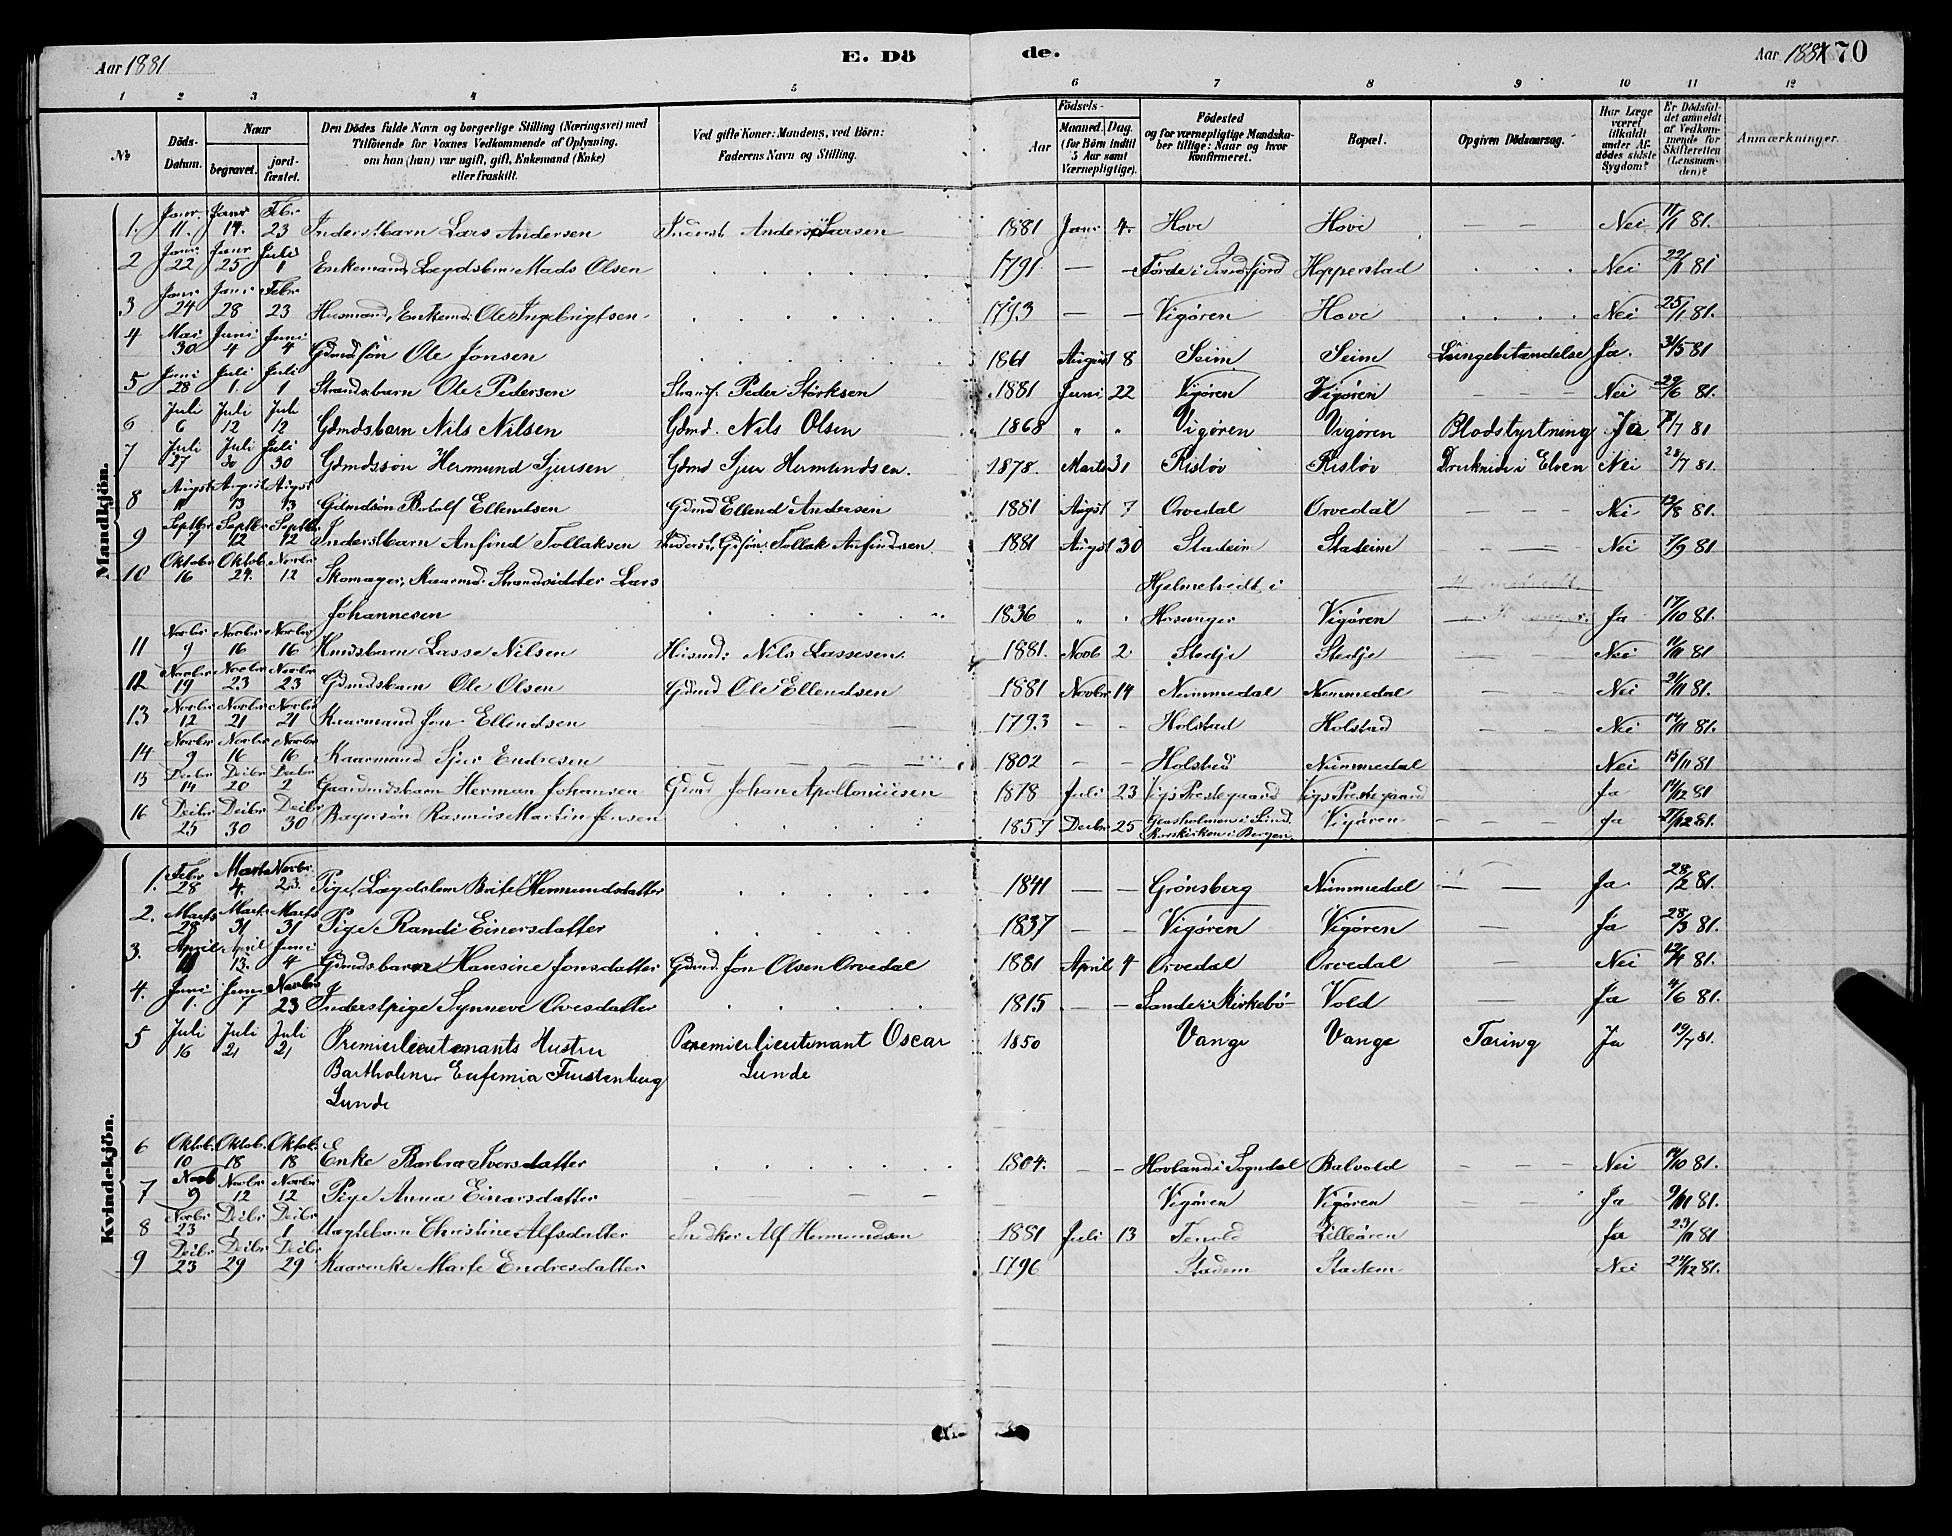 Aar 1881 E. Dö de. Aar 1881 70
1 2 3 4 5 6 7 8 9 10 11 12
№ Döds-Datum. Naar begravet. jordfæstet. Den Dödes fulde Navn og borgerlige Stilling (Næringsvei) med Tilföiende for Voxnes Vedkommende af Oplysning, om han (hun) var ugift, gift, Enkemand (Enke) eller fraskilt. Ved gifte Koner: Mandens, ved Börn: Faderens Navn og Stilling. Aar Födsels- Maaned. Dag. (for Börn indtil 5 Aar samt Værnepligtige). Födested og for værnepligtige Mandskaber tillige: Naar og hvor konfirmeret. Bopæl. Opgiven Dödsaarsag. Har Læge været tilkaldt under Afdödes sidste Sygdom? Er Dödsfaldet anmeldt af Vedkommende for Skifteretten (Lensmanden)? Anmærkninger.
Mandkjön.
1. Janr. 11. Janr 14. Febr 23 Inderstbarn Lars Andersen Inderst Anders Larsen 1881 Janr 4. Hove Hove — — Nei 11/1 81.
2 Janr 22 Janr 25 Juli 1 Enkemand, Lægdslem Mads Olsen 1791 — — Förde i Söndfjord Hopperstad Nei 22/1 81
3 Janr 24 Janr 28 Febr 23 Husmand, Enkemd. Ole Ingebrigtsen 1793 — — Vigøren Hove Nei 25/1 81.
4 Mai 30 Juni 4 Juni 4 Gdmdsøn Ole Jonsen 1861 August 8 Seim Seim Lungebetændelse Ja. 31/5 81
5 Juni 28 Juli 1. Juli 1 Strandsbarn Ole Pedersen Strands. Peder Størksen 1881 Juni 22 Vigøren Vigøren — — Nei 29/6 81.
6 Juli 6 Juli 12 Juli 12 Gdmdsbarn Nils Nilsen Gdmd. Nils Olsen 1868 " " Vigøren Vigøren Blodstyrtning Ja 8/7 81
7 Juli 27 Juli 30 Juli 30 Gdmdssøn Hermund Sjursen Gdmd Sjur Hermundsen. 1878. Marts 31 Risløv Risløv Druknede i Elven Nei 28/7 81.
8 Augst 11 August 13 Augst 13 Gdmdsøn Botolf Ellendsen Gdmd Ellend Andersen 1881 Augst 7 Orvedal Orvedal — — Nei 12/8 81.
9 Septbr 7 Septbr 12 Septbr 12 Inderstbarn Anfind Tollaksen Inderst, Gdsøn. Tollak Anfindsen 1881 Augst 30 Stadeim Stadeim — — Nei 7/9 81
10 Oktober 16 Oktob. 24. Novbr 12 Skomager, Kaarmd. Strandsidder Lars Hjelmetvedt i
Johannesen 1836 " " Hosanger Vigøren Ja 17/10 81.
11 Novbr 9 Novbr 16 Novbr 16 Husdsbarn Lasse Nilsen Husmd: Nils Lassesen. 1881. Novb 2 Stedje Stedje — — Nei 11/11 81
12 Novbr 19 Novbr 23 Novbr 23 Gdmdsbarn Ole Olsen Gdmd Ole Ellendsen 1881 Novbr 14 Nummedal Nummedal — — Nei 21/11 81.
13 Novbr 12 Novbr 21 Novbr 21 Kaarmand Jon Ellendsen — — — 1793 — — Holstad Holstad — — Nei 14/11 81.
14 Novbr 9 Novbr 16 Novbr 16 Kaarmand Sjur Endresen — — — 1802 — — Holstad Nummedal — — Nei 15/11 81
15 Decbr 14 Decbr 20 Decbr 2 Gaardmdsbarn Herman Johansen Gdmd Johan Apolloniisen 1878 Juli 23 Vigs Prestegaard Vigs Prestegaard Ja 14/12 81
16 Decbr 25 Decbr 30 Decbr 30 Bagersøn Rasmus Martin Jensen 1857 Decbr 25 Korskirken i Bergen Vigøren — — Ja 27/12 81.
Kvindekjön.
1. Febr 28 Marts 4. Novbr. 23. Pige, Lægdslem Brite Hermundsdatter 1841 — — Grönsberg Nummedal — — Ja 28/2 81.
2. Marts 28 Marts 31 Marts 31 Pige Randi Einersdatter 1837 — — Vigøren Vigøren — Ja 28/3 81.
3. April 10 April 13. Juni 4 Gdmdsbarn Hansine Jonsdatter Gdmd. Jon Olsen Orvedal 1881 April 4 Orvedal Orvedal — Nei 12/4 81.
4. Juni 1. Juni 7 Novbr 23 Inderstpige Synneve Ovesdatter 1815 — — Sande i Kirkebö Vold — Ja 4/6 81.
5 Juli 16 Juli 21 Juli 21 Premierlieutenants Hustru Premierlieutenant Oscar 1850 Vange Vange Tæring Ja 19/7 81.
Bartholine Eufemia Furstenberg Lunde
Lunde
6 Oktob. 10 Oktob. 18 Oktob. 18 Enke Barbra Iversdatter 1804. — — Hovland i Sogndal Balvold — — Nei 14/10 81.
7 Novb 9 Novbr 12 Novbr 12 Pige Anna Einarsdatter — — — Vigøren Vigøren — — Ja 9/11 81.
8 Novbr 23 Decbr 1 Decbr 1 Uægtebarn Christine Alfsdatter Snedker Alf Hermundsen 1881 Juli 13 Tenold Lilleøren Ja 23/11 81
9 Decbr 23 Decbr 29 Decbr 29 Kaarenke Marte Endresdatter 1796 Stadem Stadem Nei 24/12 81.